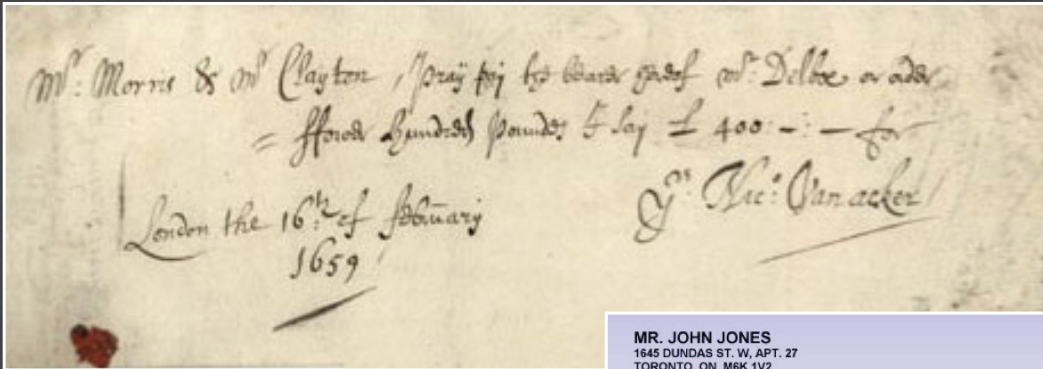 Mr: Morris & Mr Clayton, pray pay the bearer hereof Mr: Delboe or order
= ffower hundred pounds I say £ 400:-:- for
Yrs. Nic: Vanacker
London the 16th of february
1659
MR. JOHN JONES
1645 DUNDAS ST. W, APT. 27
TORONTO, ON M6K 1V2